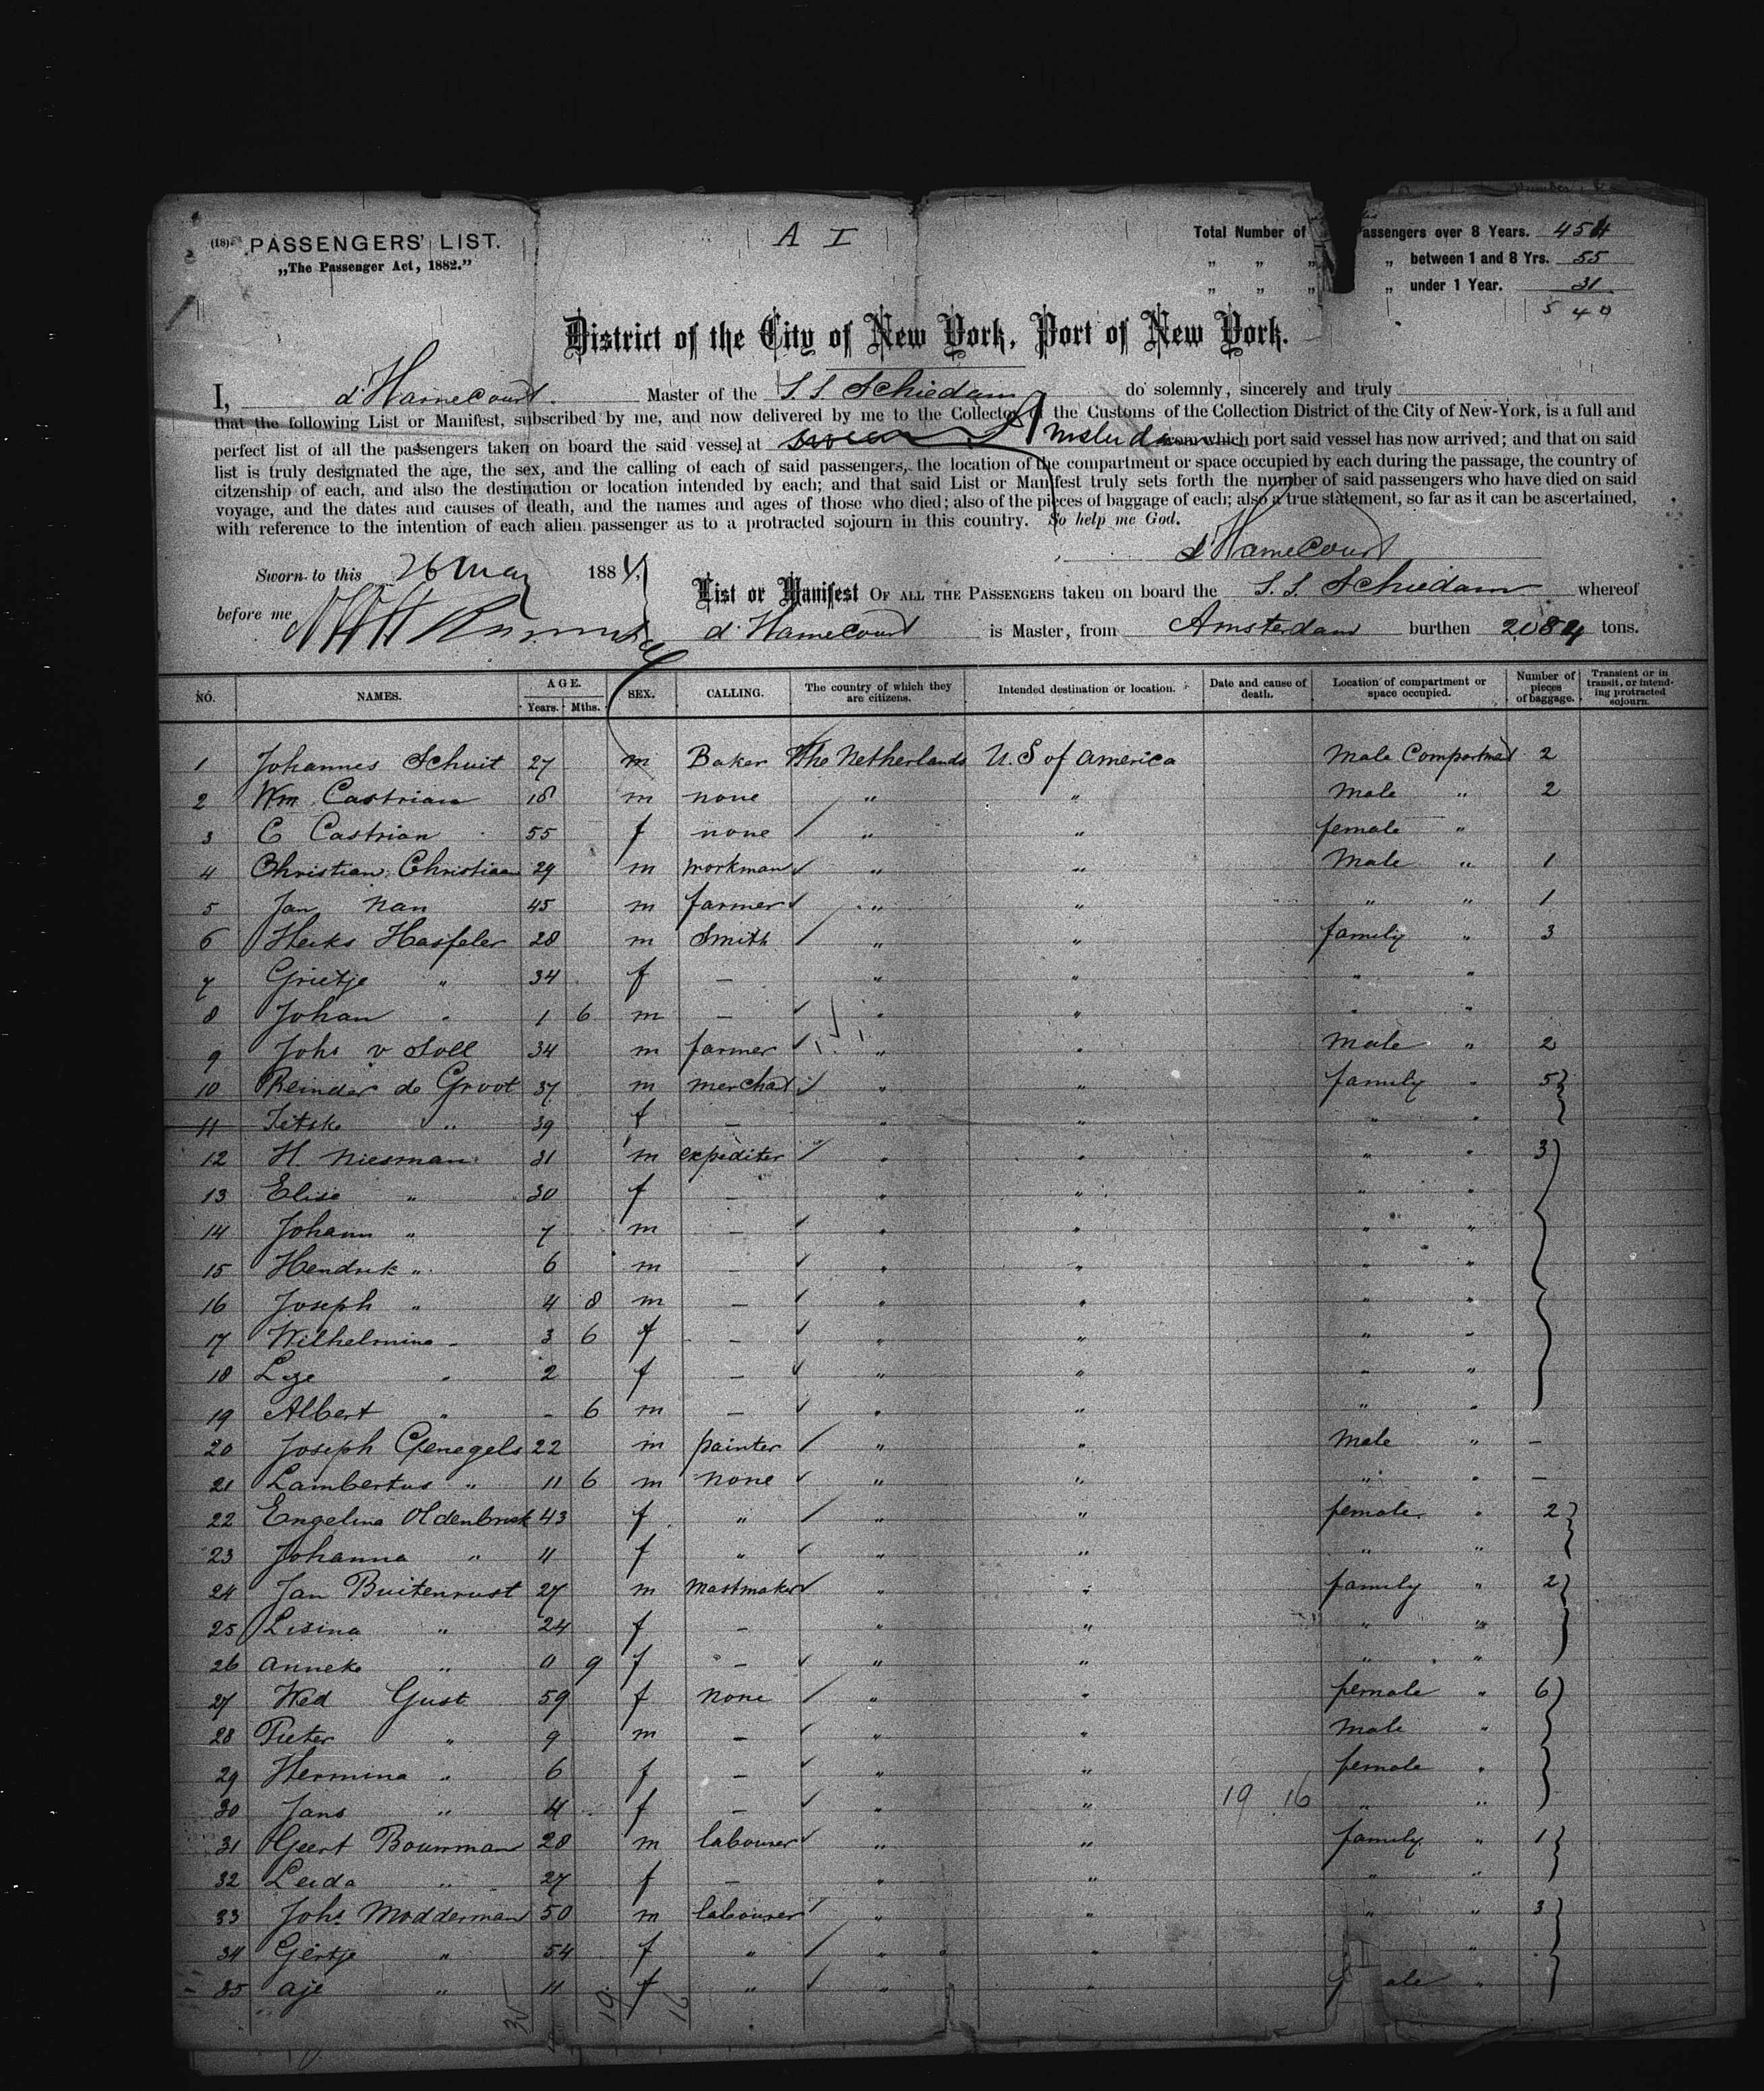 (18) PASSENGERS' LIST.
„The Passenger Act, 1882."
A I
Total Number of assengers over 8 Years. 454
„ „ „ „ between 1 and 8 Yrs. 55
„ „ „ „ under 1 Year. 31
5 4 0
District of the City of New York, Port of New York.
I, d'Hamecourt. Master of the S.S Schiedam do solemnly, sincerely and truly
that the following List or Manifest, subscribed by me, and now delivered by me to the Collector of the Customs of the Collection District of the City of New-York, is a full and
perfect list of all the passengers taken on board the said vessel at Amsterdam from which port said vessel has now arrived; and that on said
list is truly designated the age, the sex, and the calling of each of said passengers, the location of the compartment or space occupied by each during the passage, the country of
citzenship of each, and also the destination or location intended by each; and that said List or Manifest truly sets forth the number of said passengers who have died on said
voyage, and the dates and causes of death, and the names and ages of those who died; also of the pieces of baggage of each; also a true statement, so far as it can be ascertained,
with reference to the intention of each alien passenger as to a protracted sojourn in this country. So help me God.
d'Hamecourt
Sworn to this 26 May 1884,
before me
List or Manifest OF ALL THE PASSENGERS taken on board the S.S. Schiedam whereof
d'Hamecourt is Master, from Amsterdam burthen 2084 tons.
NO. NAMES. AGE. Years. Mths. SEX. CALLING. The country of which they are citizens. Intended destination or location. Date and cause of death. Location of compartment or space occupied. Number of pieces of baggage. Transient or in transit, or intending protracted sojourn.
1 Johannes Schuit 27 m Baker The Netherlands U.S of America Male Compartmet 2
2 Wm. Castrian 18 m none " " Male " 2
3 C Castrian 55 f none " " female "
4 Christian Christiaan 29 m workman " " Male " 1
5 Jan Nan 45 m farmer " " " " 1
6 Heiks Hasfeler 28 m Smith " " family " 3
7 Grietje " 34 f — " " " "
8 Johan " 1 6 m — " " " "
9 Johs v Soll 34 m farmer " " Male " 2
10 Reinder de Groot 37 m merchat " " family " 5
11 Titske " 39 f — " " " "
12 H. Niesman 31 m expediter " " " " 3
13 Elise " 30 f — " " " "
14 Johann " 7 m — " " " "
15 Hendrik " 6 m — " " " "
16 Joseph " 4 8 m — " " " "
17 Wilhelmina " 3 6 f — " " " "
18 " 2 f — " " " "
19 Albert " - 6 m — " " " "
20 Joseph Genegels 22 m painter " " Male " —
21 Lambertus " 11 6 m none " " " " —
22 Engelina Oldenbrok 43 f " " " female " 2
23 Johanna " 11 f " " " " "
24 Jan Buitenrust 27 m Mastmaker " " family " 2
25 Lisina " 24 f — " " " "
26 Anneke " 0 9 f — " " " "
27 Wed Gust 59 f none " " female " 6
28 Pieter " 9 m — " " Male "
29 Hermina " 6 f — " " female "
30 Jans " 4 f — " " 19 16 " "
31 Geert Bouwman 28 m labourer " " family " 1
32 Leida " 27 f — " " " "
33 Johs Modderman 50 m labourer " " " " 3
34 Gertje " 54 f " " " "
35 Aje " 11 f " " " f ale "
35 19 16